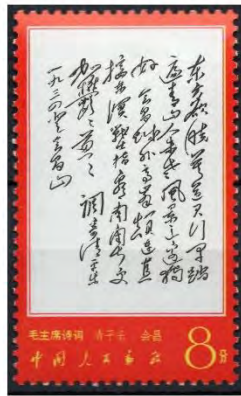 东方欲晓莫道君行早踏
遍青山人未老风景这边独
好 会昌城外高峰颠连直
接东溟战士指看南粤更
加郁郁葱葱 调寄清平乐
一九三四年登会昌山
毛主席诗词 清平乐 会昌
中国人民邮政 8分